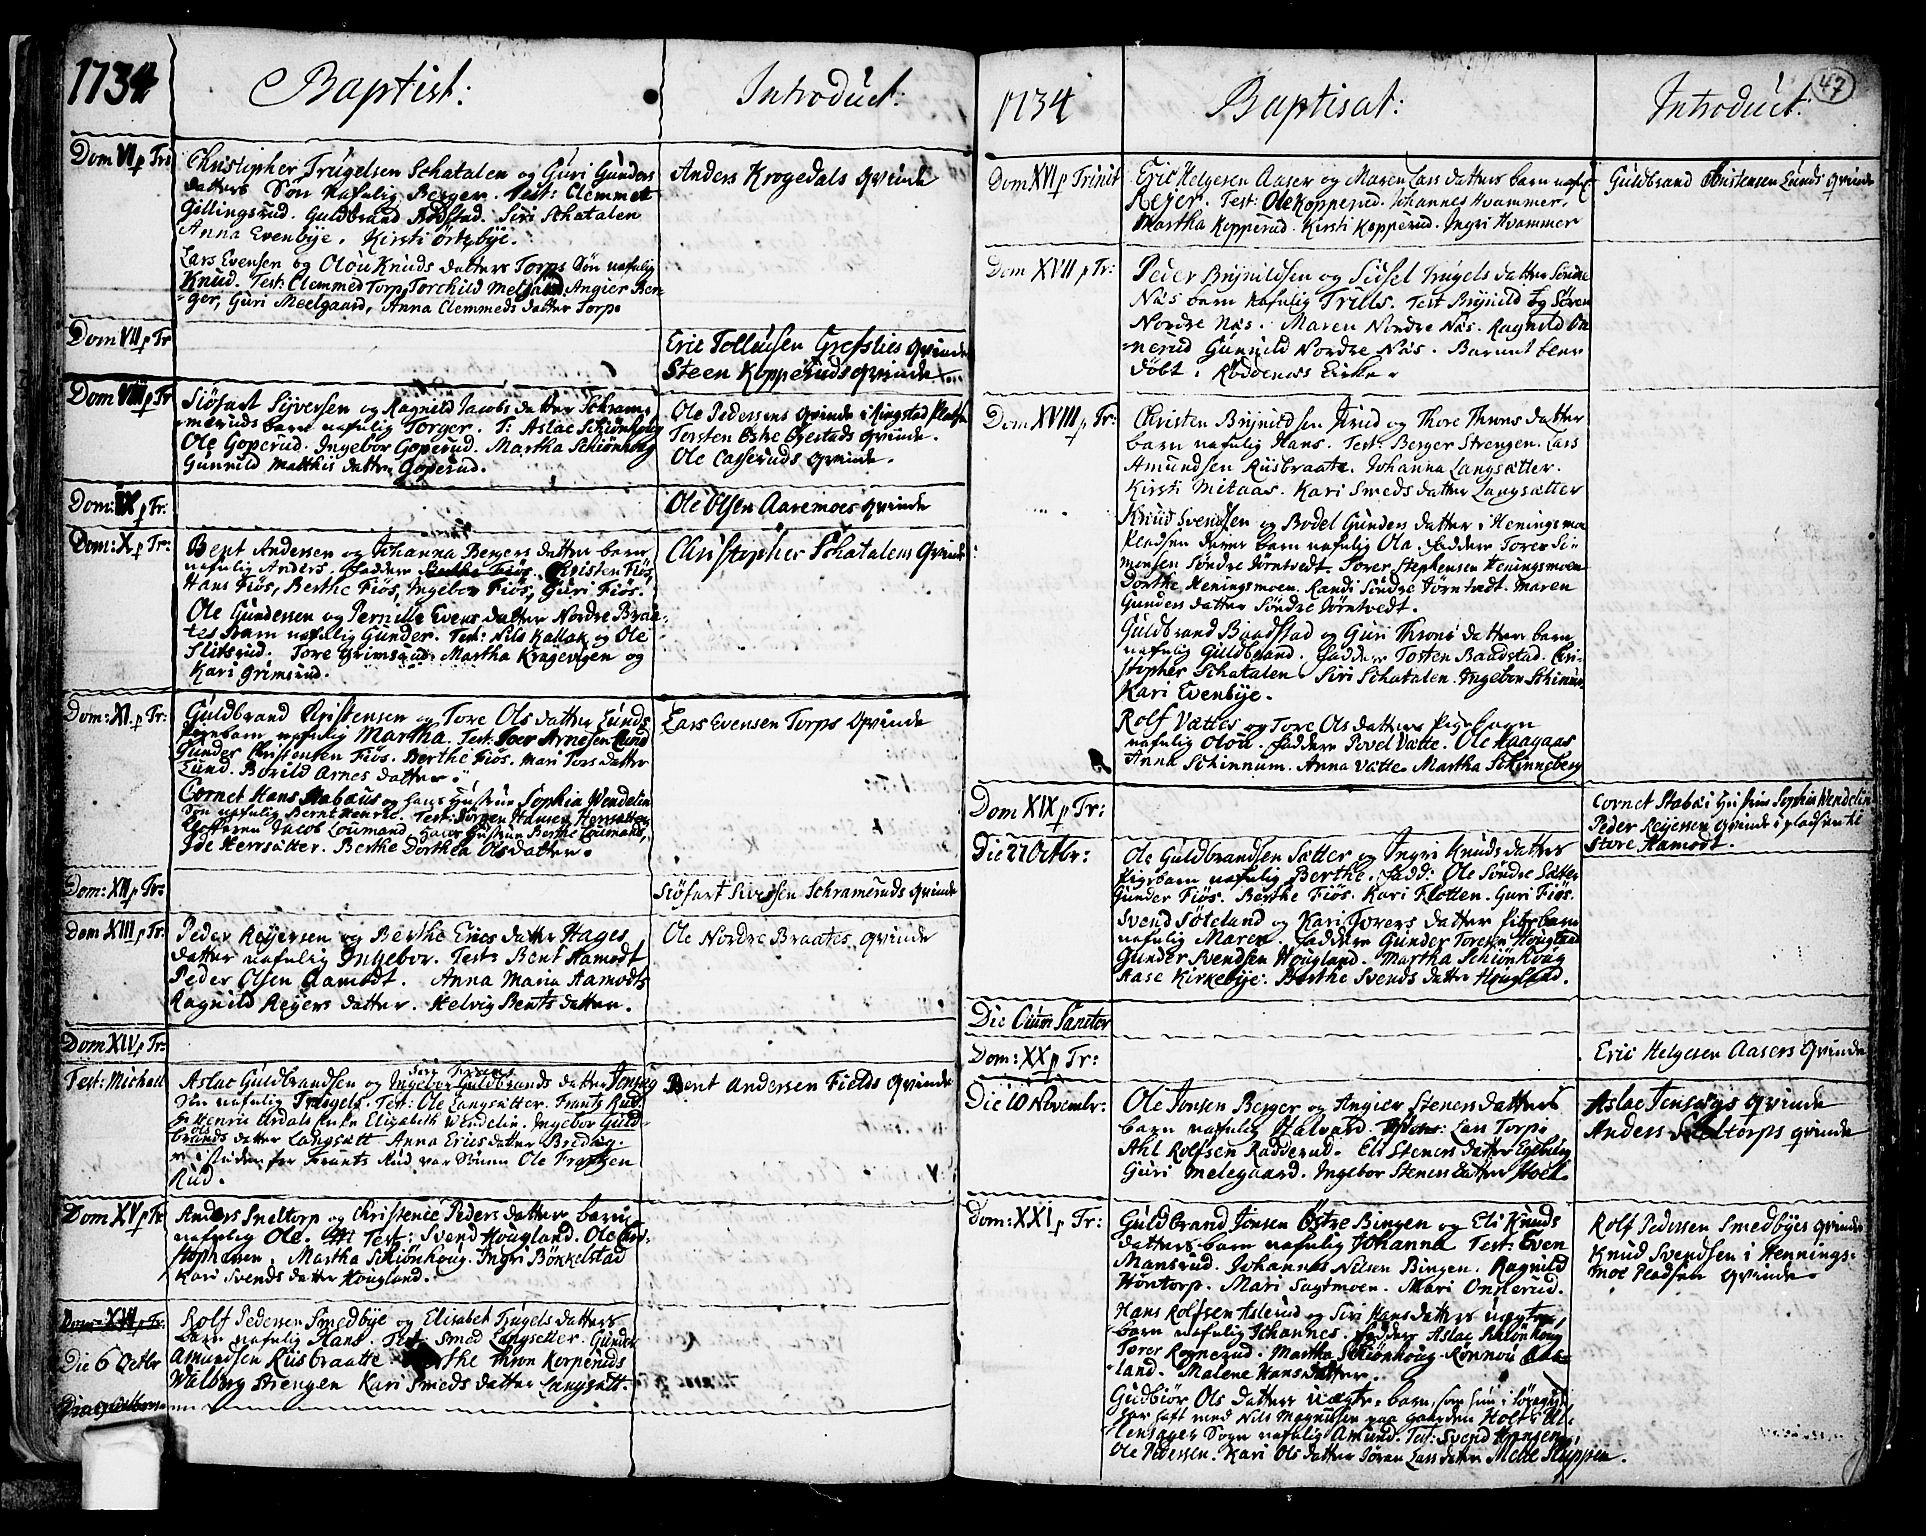 1734
Baptist:
Introduct:
Dom VI p Tri
Christopher Trugelsen Schatalen og Guri Gunders
datters Søn nafnlig Berger. Test: Clemmet
Gillingsrud. Guldbrand Bødstad. Siri Schatalen
Anna Evenbye. Kirsti Örtebye.
Anders Krogedals qvinde
Lars Evensen og Olou Knuds datters Torps Søn nafnlig
Knud. Test: Clemmed Torp, Torchild Melgaard. Angier Ber-
ger, Guri Meelgaard, Anna Clemmeds datter Torp.
Dom VII p Tr
Eric Tollevsen Grefslies qvinde
Steen Kopperuds qvinde
Dom VIII p Tr
Siöfast Sijversen og Ragnild Jacobs datter Schram-
meruds barn nafnlig Torger. T: Aslac Schiönhoug
Ole Goperud. Ingebor Goperud. Martha Schiönhoug
Gunnild Matthis datter Goperud.
Ole Pedersens qvinde i Ringstad Pladsen
Torsten Østre Øvestads qvinde.
Ole Casseruds qvinde.
Dom: IX p Tr:
Ole Olsen Aaremoes qvinde
Dom: X p Tr:
Bent Andersen og Johanna Bergers datter barn
nafnlig Anders. Faddere Berthe Fiös. Christen Fiös
Hans Fiös, Berthe Fiös, Ingebor Fiös, Guri Fiös.
Christopher Schatalens qvinde
Ole Gundersen og Pernille Evens datter Nordre Braa-
tes barn nafnlig Gunder. Test: Nils Kallak og Ole
Slitsrud. Tore Grimsrud. Martha Kragevigen og
Kari Grimsrud.
Dom: XI. p Tr:
Guldbrand Christensen og Tore Ols datter Lunds
Pigebarn nafnlig Martha. Test: Toer Arnesen Lund
Gunder Christensen Fiös. Berthe Fiös. Mari Tors datter
Lund. Borild Arnes datter.
Lars Evensen Torps Qvinde
Cornet Hans Stabäus og hans Hustrue Sophia Wendelin
Søn nafnlig Bernt Henric. Test: Jörgen Hansen Herrsætter
Jacob Loumand hans Hustrue Berthe Loumans,
Ide Herrsätter. Berthe Dorthea Olsdatter.
Dom: XII p Tr:
Siöfast Siversen Schrameruds qvinde
Dom XIII p Tr:
Peder Reijersen og Berthe Erics datter Hages
datter nafnlig Ingebor. Test: Bent Aamodt
Peder Olsen Aamodt. Anna Maria Aamodts
Ragnild Reijers datter. Helvig Bents datter.
Ole Nordre Braates qvinde
Dom XIV p Tr:
Fest: Michael
Aslac Guldbrandsen og Ingebor Guldbrands datter Jonsrg
Søn nafnlig Trugels. Test: Ole Langsätter. Frantz Rud
Elizabeth Wendelin. Ingebor Guld-
brands datter Langsätt Anna Erics datter Bredvig.
isteden for Frants Rud var Sønnen Ole Frantzen
Rud.
Bent Andersen Fields qvinde
Dom XV p Tr
Anders Sneltorp og Christence Peders datter barn
nafnlig Ole. Test: Svend Hougland. Ole Chri-
stophersen. Martha Schiönhoug. Ingri Bökkelstad
Kari Svends datter Hougland.
Dom XVI p Tr:
Die 6 Octbr
Rolf Pedersen Smedbye og Elisabet Trugels datters
barn nafnlig Hans. Test: Smed Langsetter. Gunder
Amundsen Riisbraatte. Berthe Thron Korperuds
Walborg Strengen Kari Smeds datter Langsätt.
1734
Baptisat:
Introduct:
47
Dom XVI p Trinit
Eric Helgesen Aaser og Maren Lars datters barn nafnl:
Reijer. Test: Ole Kopperud. Johannes Hvammer.
Martha Kopperud. Kirsti Kopperud. Ingri Hvammer
Guldbrand Christensen Lunds qvinde
Dom XVII p Tr:
Peder Brijnildsen og Sidsel Trugels datter Söndre
Näs barn nafnlig Trills. Test Brijnild og Sören
Nordre Näs. Maren Nordre Näs. Ragnild On-
nerud Gunnild Nordre Näs. Barnet blev
döbt i Röddenæs Kirke.
Dom XVIII p Tr:
Christen Brijnildsen Krud og Thore Throns datter
barn nafnlig Hans. Test: Berger Strengen. Lars
Amundsen Riisbraate. Johanna Langsætter.
Kirsti Mitaas. Kari Smeds datter Langsætter
Knud Svendsen og Bodel Gunders datter i Henings moe
Pladsen deres barn nafnlig Ola. Faddere Torer Si-
monsen Söndre Jörntvedt. Torer Stephensen Heningsmoen
Dorthe Heningsmoen. Randi Söndre Jörntvedt. Maren
Gunders datter Söndre Jörntvedt.
Guldbrand Baadstad og Guri Throns datter barn
nafnlig Guldbrand. Faddere Tosten Baadstad. Chri-
stopher Schatalen Siri Schatalen. Ingebor Schinnes
Kari Evenbije.
Rolf Vættes og Tore Ols datters Pigebarn
nafnlig Olou. Faddere Povel Vætte. Ole Haagaas
Anne Schinnum. Anna Vätte. Martha Schinneberg
Dom XIX p Tr:
Cornet Stabæi Hustrue Sophia Wendelin
Peder Reijersens qvinde i pladsen til
Store Aamodt.
Die 27 Octbr:
Ole Guldbrandsen Sætter og Ingri Knuds datters
Pigebarn nafnlig Berthe. Fadd: Ole Söndre Sætter
Gunder Fiös. Berthe Fiös. Kari Flotten. Guri Fiös.
Svend Søteland og Kari Torers datter Pigebarn
nafnlig Maren. Faddere Gunder Toresen Hougland
Gunder Svendsen Hougland. Martha Schiönhoug
Aase Kirkebije. Berthe Svends datter Hougland.
Die Oium Sanctor
Dom: XX p Tr:
Eric Helgesen Aasers qvinde
Die 10 Novembr:
Ole Jonsen Berger og Angier Stenersdatters
barn nafnlig Halvard. Lars Torp.
Ahl Rolfsen Radderud. Eli Steners datter Engebrig
Guri Melegaard. Ingebor Steners datter Holt.
Aslac Jensvigs qvinde
Anders Sneltorps qvinde
Dom: XXI p Tr:
Guldbrand Jonsen Østre Bingen og Eli Knuds
datters barn nafnlig Johanna Test: Even
Mansrud. Johannes Nilsen Bingen. Ragnild
Horntorp. Mari Sagtmoen. Mari Onnerud.
Rolf Pedersen Smedbyes qvinde
Knud Svendsen i Hennings-
moe Pladsen qvinde.
Hans Rolfsen Aslerud og Siri Hansdatters uægte
barn nafnlig Johannes. Faddere Aslac Schiönhoug
Torer Rognerud. Martha Schiönhoug Rönnou Aas-
land. Malene Hansdatter.
Gudbiör Ols datters uægte barn, som hun i
har haft med Nils Magnussen paa gaarden Holt i Ul-
lensager Sogn nafnlig Amund. Test: Svend Hansen,
Ole Pedersen. Kari Ols datter Joran Lars datter Mette Kleppen.